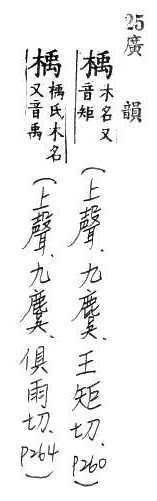 25廣韻
楀木名又音矩(上聲、九麌、王矩切、P260)
楀楀氏木名又音禹(上聲、九麌、俱雨切、P264)